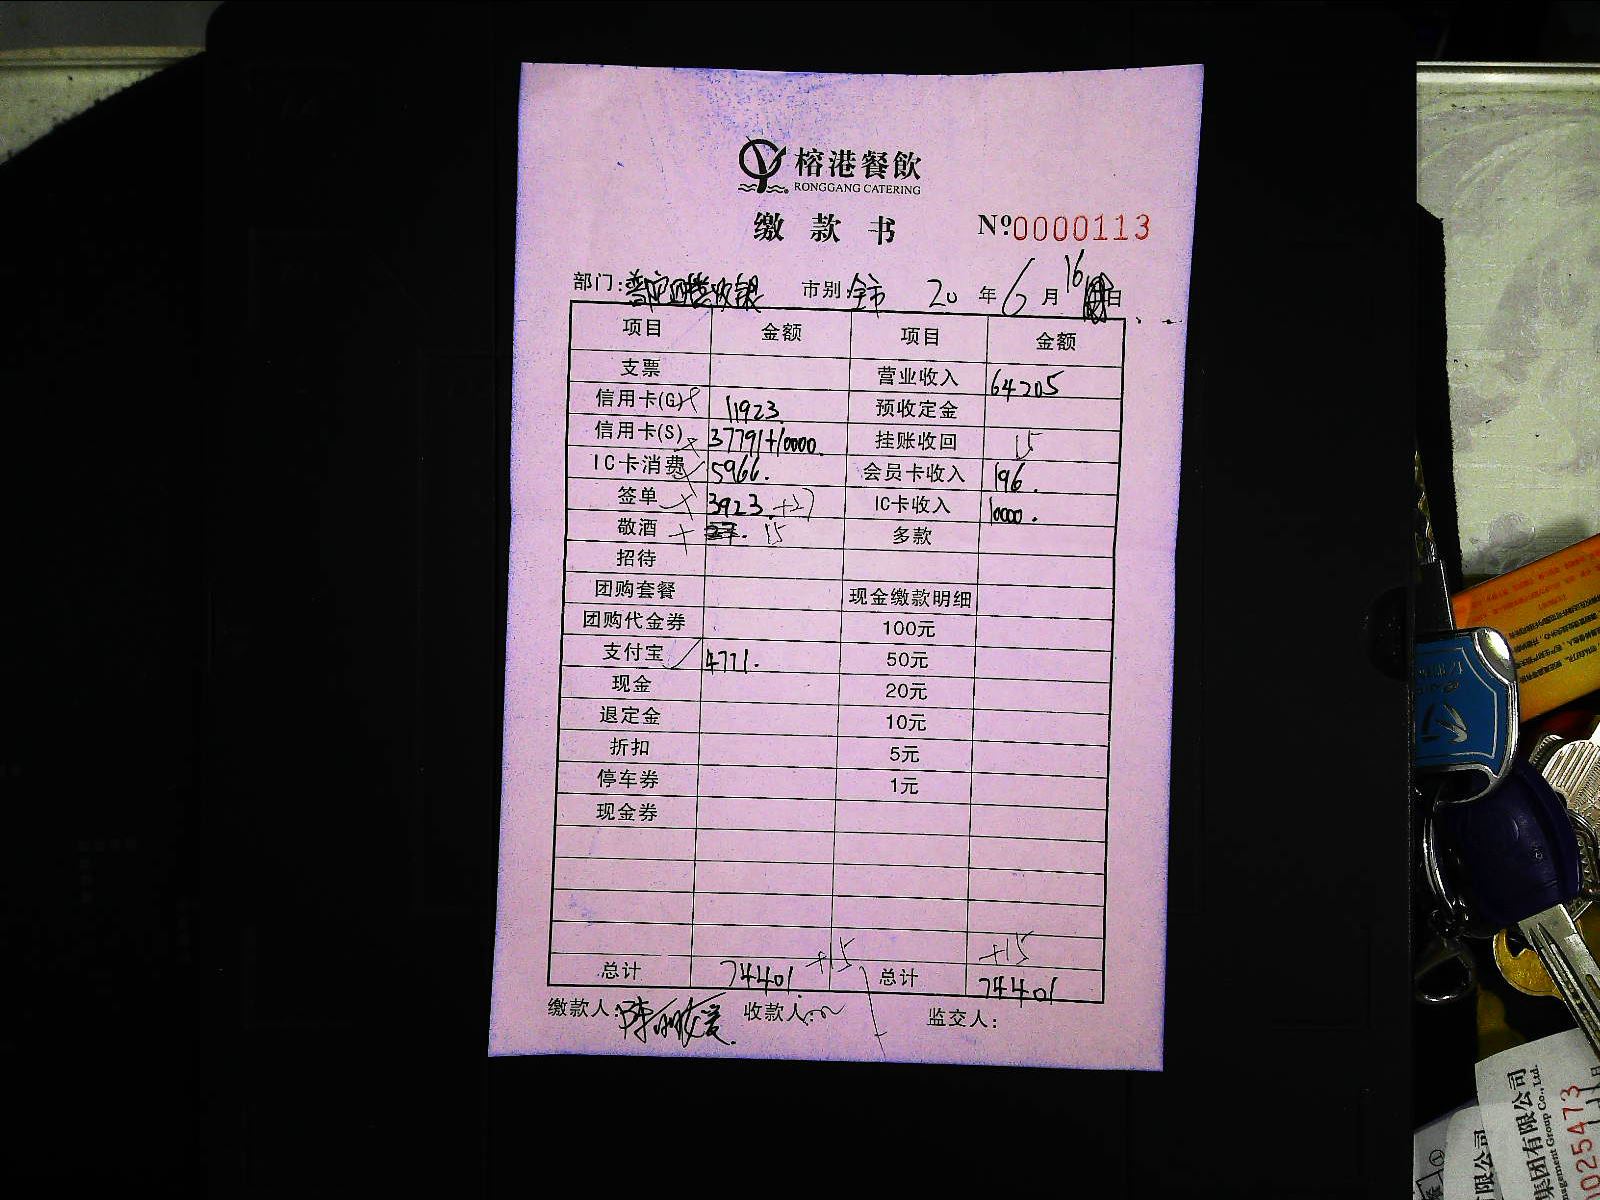 榕港餐飲
RONGGANG CATERING
缴款书 Nº0000113
部门: 市别:全市 20年6月16日
项目 金额 项目 金额
支票 营业收入 64205
信用卡(G) 11923. 预收定金
信用卡(S) 37791+10000. 挂账收回 15
IC卡消费 5966. 会员卡收入 196.
签单 3923.+27 IC卡收入 10000.
敬酒 15 多款
招待
团购套餐 现金缴款明细
团购代金券 100元
支付宝 4771. 50元
现金 20元
退定金 10元
折扣 5元
停车券 1元
现金券
+15 +15
总计 74401. 总计 74401
缴款人: 收款人: 监交人:
集团有限公司
nagement Group Co., Ltd.
0025473
限公司